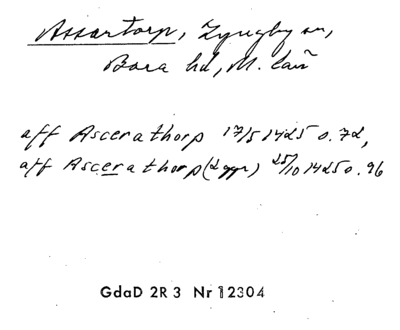 Assartorp, Ljungby sn,
Bara hd, M. län
aff Ascerathorp 17/5 1425 O. 72,
aff Ascerathorp (2 ggr) 25/10 1425 O. 96
GdaD 2R3 Nr 12304